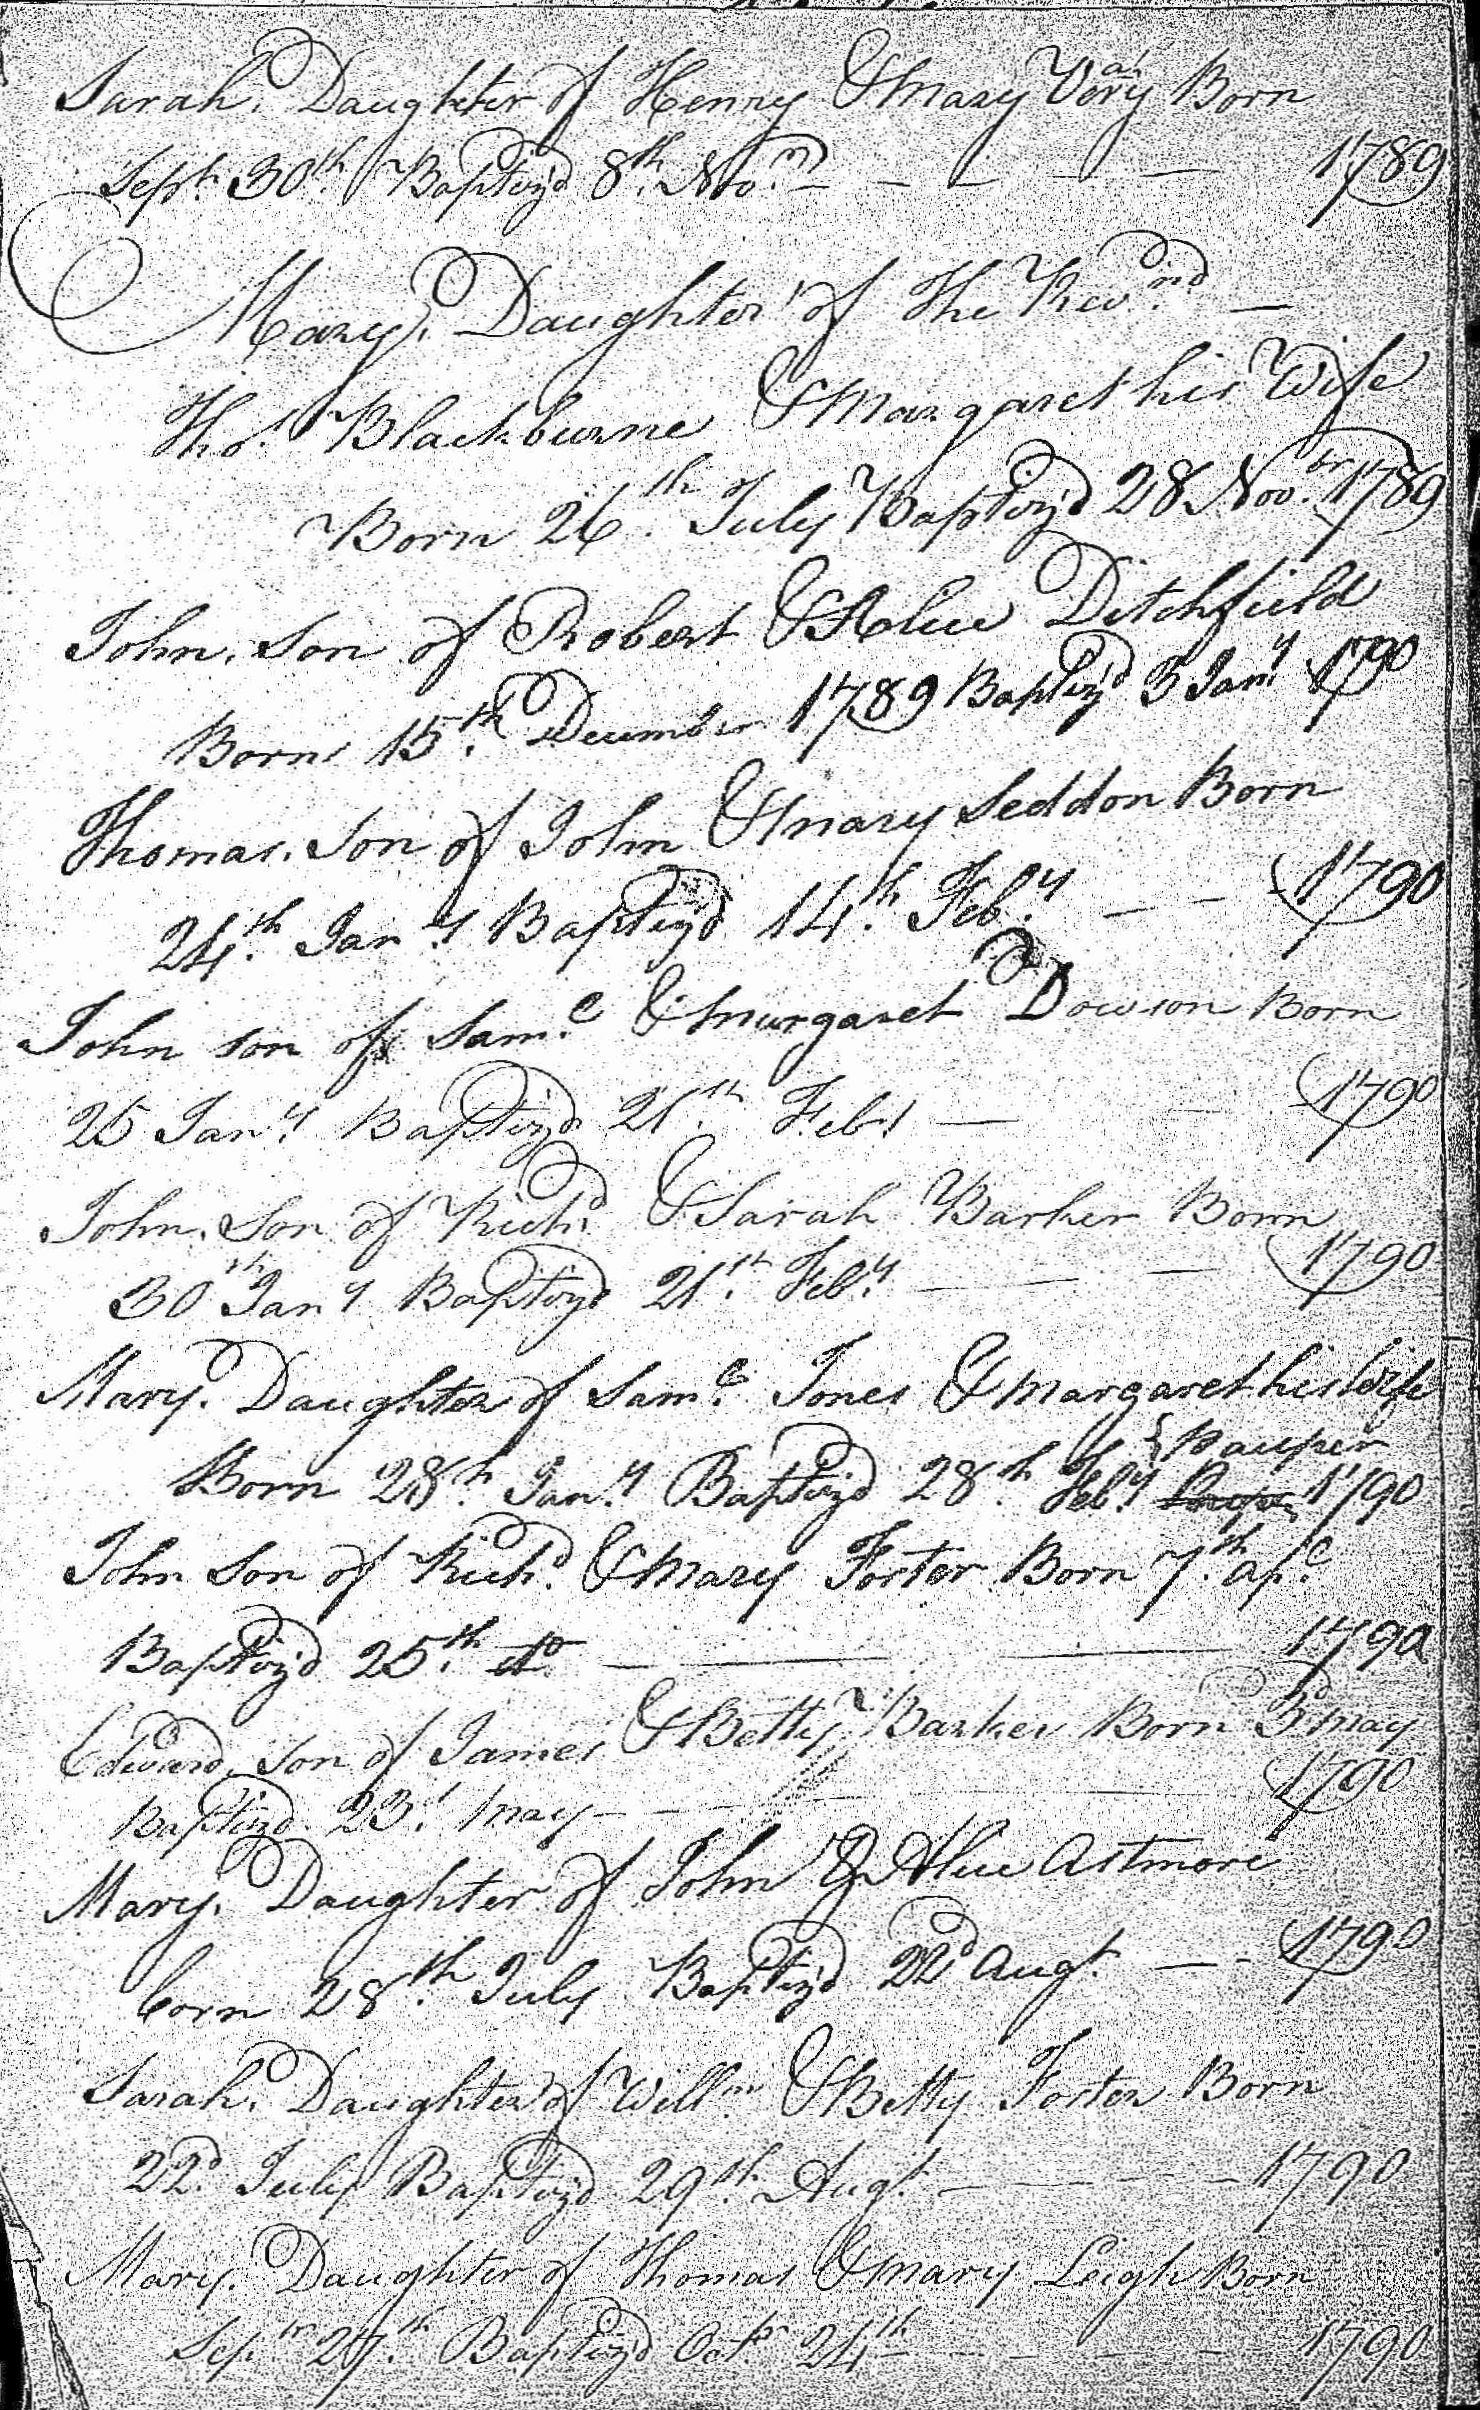 Sarah. Daughter of Henry & Mary Very Born
Sept. 30th. Baptiz'd 8th. Nov. 1789
Mary. Daughter of The Revnd
Thos. Blackburne & Margaret his Wife
Born 26th. July Baptiz'd 28 Novbr. 1789
John. Son of Robert & Alice Ditchfield
Born 15th. December 1789 Baptiz'd 3 Jany. 1790
Thomas. Son of John & Mary Seddon Born
24th. Jany. Baptiz'd 14th. Feby. 1790
John son of Saml. & Margaret Dowson Born
25 Jany. Baptiz'd 21st. Feby. 1790
John. Son of Richd. & Sarah Barker Born
30th Jany Baptiz'd 21st. Feby. 1790
Mary. Daughter of Saml. Jones & Margaret his Wife
Pauper
Born 28th. Jany. Baptiz'd 28th. Feby. 1790
John Son of Richd. & Mary Forter Born 7th. apl.
Baptiz'd 25th. do 1790
Edward. son of James & Betty Barker Born 3d may
Baptizd 23d. may 1790
Mary. Daughter of John & Alice Astmore
born 28th. July Baptiz'd 22d Augt. 1790
Sarah. Daughter of Willm. & Betty Forter Born
22d. July Baptiz'd 29th. Augt. 1790
Mary. Daughter of Thomas & Mary Leigh Born
Baptiz'd Octr 24th 1790